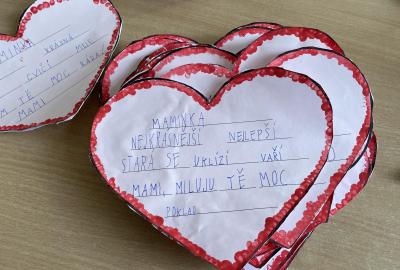 MAMINKA
KRÁSNÁ
CVIČÍ MNE
TĚ MOC
MAMI
MAMINKA
NEJKRÁSNĚJŠÍ NEJLEPŠÍ
STARÁ SE UKLÍZÍ VAŘÍ
MAMI, MILUJU TĚ MOC
POKLAD